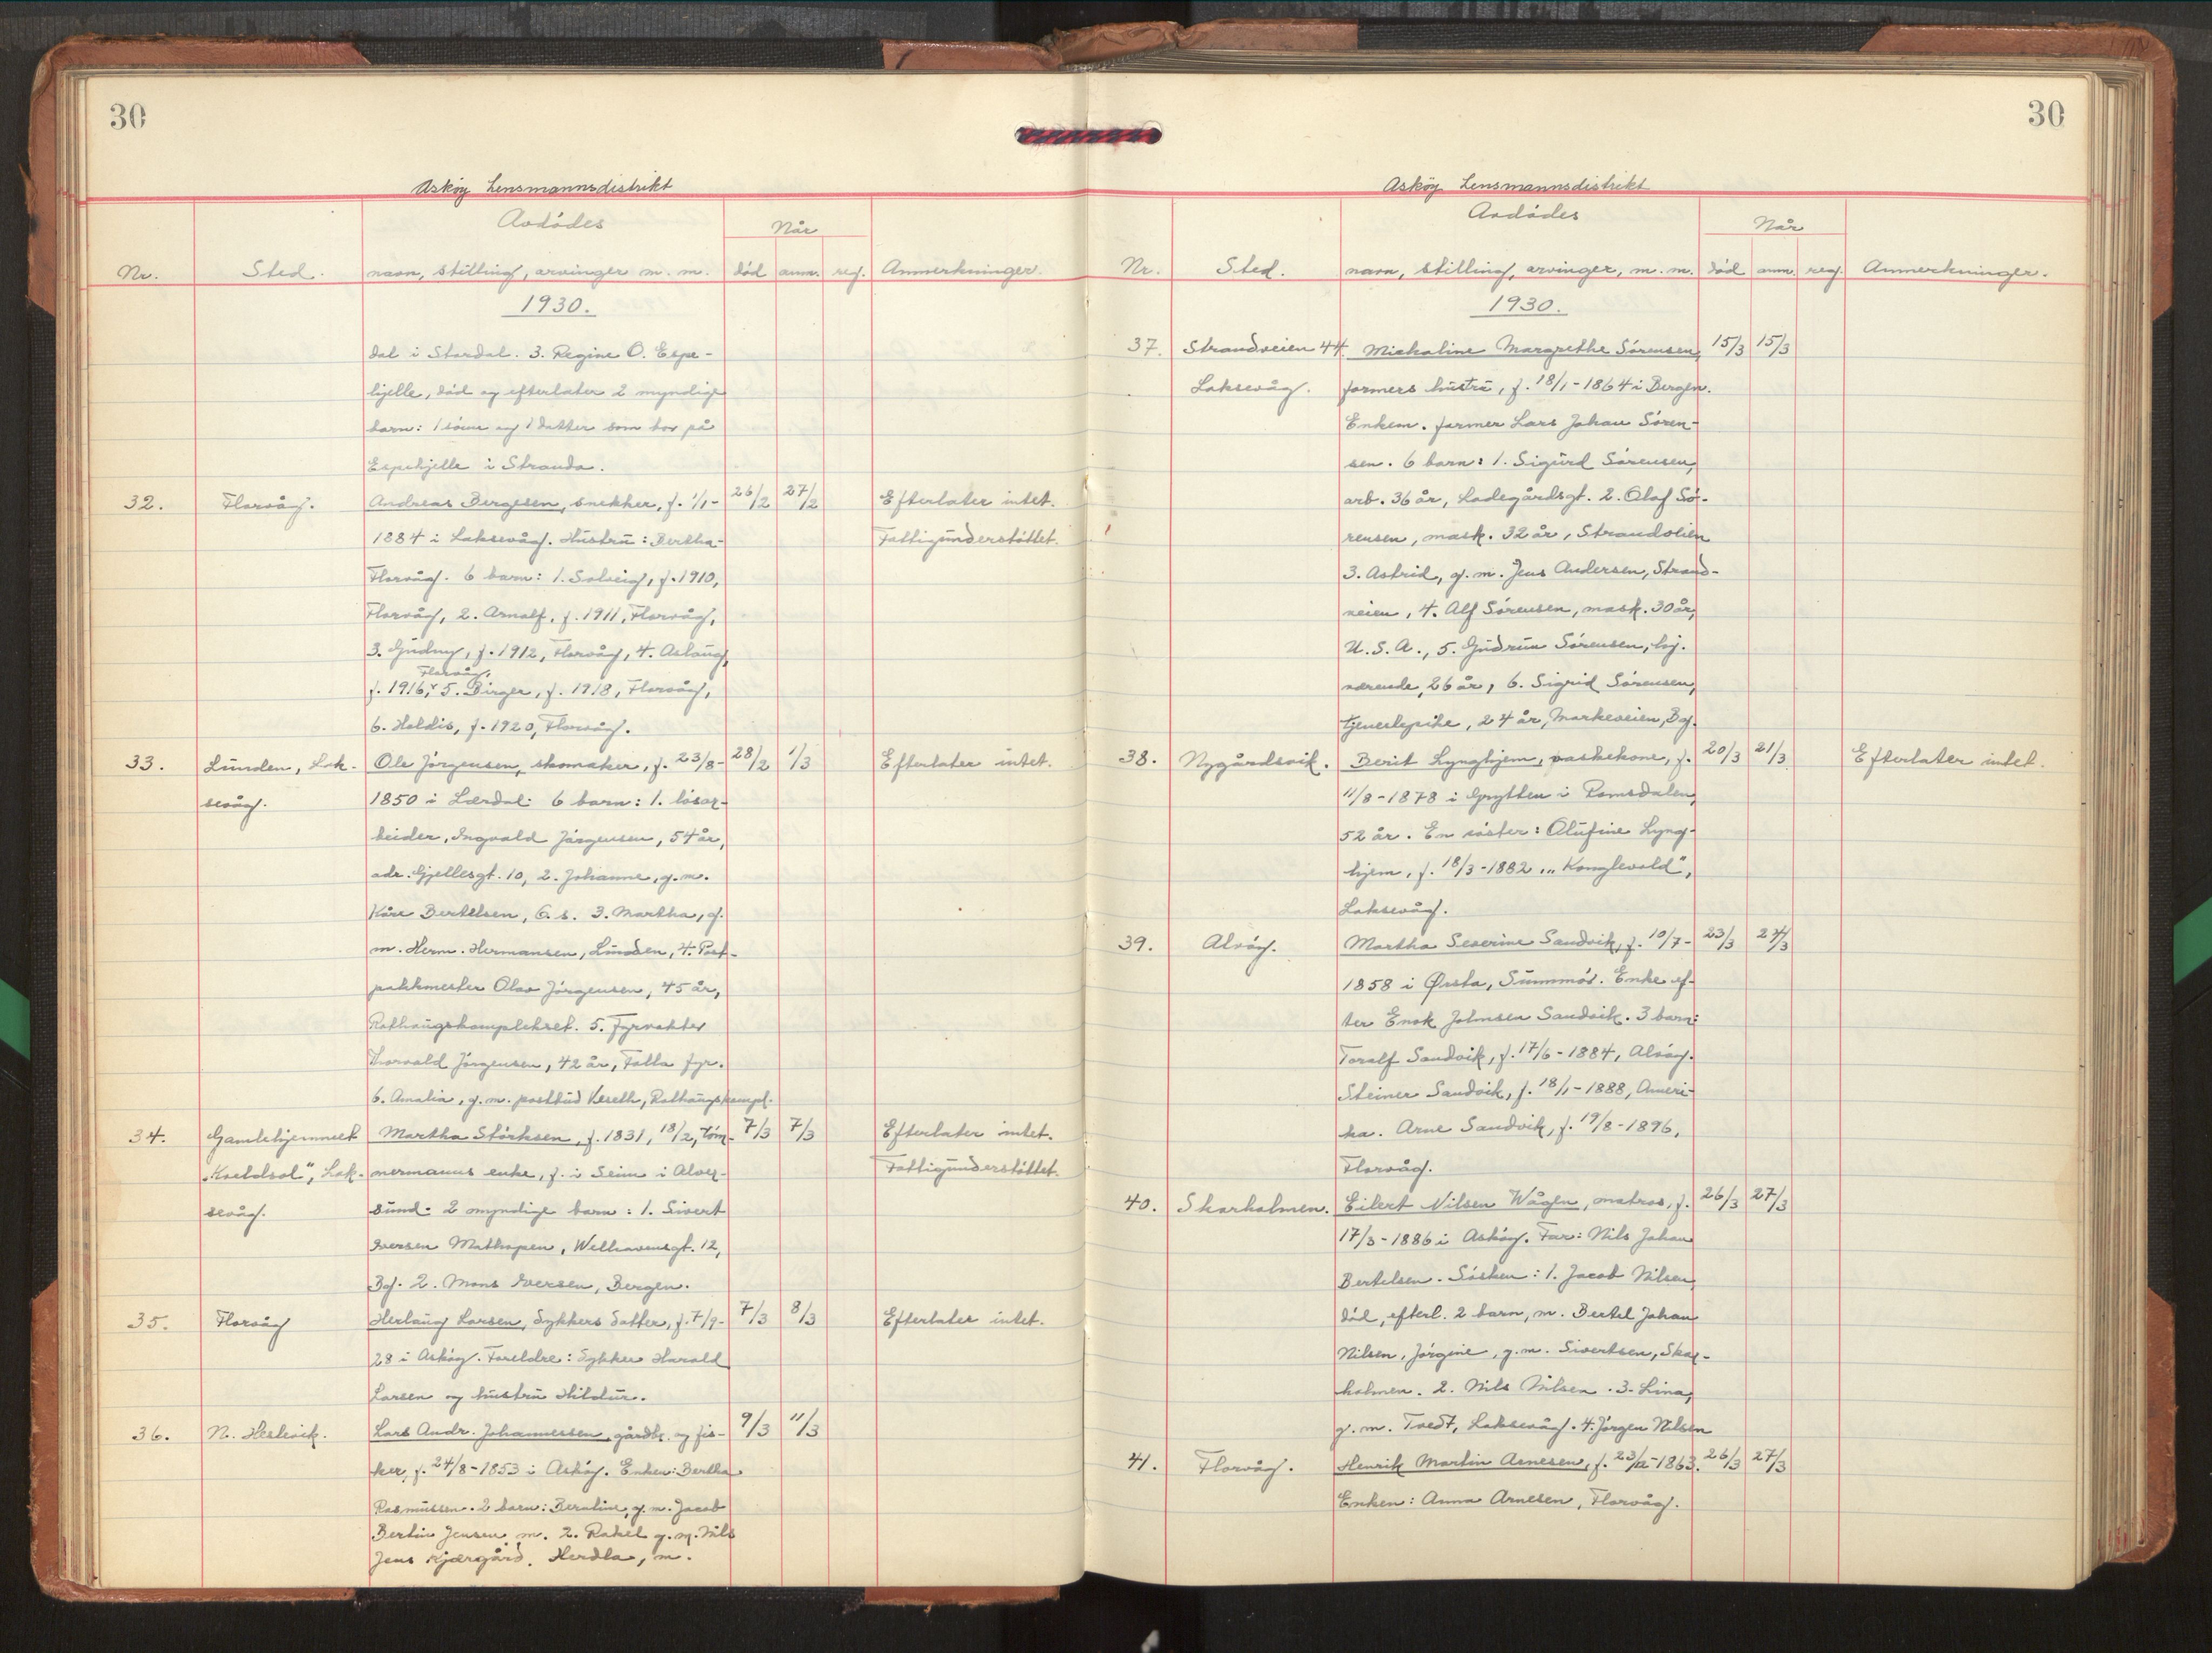 30
Asköy Lensmannsdistrikt
Avdödes
Når
Nr.
Sted.
navn, stilling, arvinger m. m.
död
anm.
reg.
Anmerkninger.
1930.
dal i Stardal. 3. Regine O. Espe-
hjelle, död og efterlater 2 myndige
barn: 1 sönn og 1 datter som bor på
Espehjelle i Stranda.
32. Florvåg. Andreas Bergesen, snekker, f. 1/1- 26/2 27/2 Efterlater intet.
1884 i Laksevåg. Hustru: Bertha Fattigunderstöttet.
Florvåg. 6 barn: 1. Solveig, f. 1910,
Florvåg, 2. Arnolf, f. 1911, Florvåg,
3. Gudny, f. 1912, Florvåg, 4. Aslaug,
Florvåg.
f. 1916, 5. Birger, f. 1918, Florvåg,
6. Haldis, f. 1920, Florvåg.
33. Lunden, Lak- Ole Jörgensen, skomaker, f. 23/8- 28/2 1/3 Efterlater intet.
sevåg. 1850 i Lærdal. 6 barn: 1. lösar-
beider, Ingvald Jörgensen, 54 år,
adr. Gjellesgt. 10, 2. Johanne, g. m.
Kåre Bertelsen, 3. Martha, g.
m. Herm. Hermansen, Lunden, 4. Post-
pakkmester Olav Jörgensen, 45 år,
Rothaugskomplekset. 5. Fyrvakter
Thorvald Jörgensen, 42 år, Fyr.
6. Amalia, g. m. postbud Rothaugskompl.
34. Gamlehjemmet Martha Störksen, f. 1831, 18/2, töm- 7/3 7/3 Efterlater intet.
"Kveldsol", Lak- mermanns enke, f. i Seim i Alver- Fattigunderstöttet.
sevåg. sund. 2 myndige barn: 1. Sivert
Iversen Mathopen, Welhavensgt. 12,
Bg. 2. Mons Iversen, Bergen.
35. Florvåg Herlaug Larsen, Dykkers datter, f. 7/9- 7/3 8/3 Efterlater intet.
28 i Asköy. Foreldre: Dykker Harald
Larsen og hustru Hildur.
36. N. Hetlevik. Lars Andr. Johannessen, gårdbr. og fis- 9/3 11/3
ker, f. 24/8-1853 i Asköy. Enken: Bertha
Rasmussen. 2 barn: Beraline, g. m. Jacob
Bertin Jensen m. 2. Rakel g. m. Nils
Jens Kjærgård. Herdla, m.
30
Asköy Lensmannsdistrikt
Avdödes
Når
Nr.
Sted.
navn, stilling, arvinger, m. m.
död
anm.
reg.
Anmerkninger.
1930.
37. Strandveien 44 Michaline Margrethe Sörensen, 15/3 15/3
Laksevåg. formers hustru, f. 18/1-1864 i Bergen.
Enkem. former Lars Johan Sören-
sen. 6 barn: 1. Sigurd Sörensen,
arb. 36 år, Ladegårdsgt. 2. Olaf Sö-
rensen, mask. 32 år, Strandveien
3. Astrid, g. m. Jens Andersen, Strand-
veien, 4. Alf Sörensen, mask. 30 år,
U. S. A., 5. Gudrun Sörensen, hj.
værende, 26 år, 6. Sigrid Sörensen,
tjenestepike, 24 år, Markeveien, Bg.
38. Nygårdsvik. Berit Lynghjem, vaskekone, f. 20/3 21/3 Efterlater intet.
11/8-1878 i Grytten i Romsdalen,
52 år. En söster: Olufine Lyng-
hjem, f. 18/3-1882 "Konglevold",
Laksevåg.
39. Alvöy. Martha Severine Sandvik, f. 10/7- 23/3 24/3
1858 i Ørsta, Sunnmör. Enke ef-
ter Enok Johnsen Sandvik. 3 barn:
Toralf Sandvik, f. 17/6-1884, Alvöy.
Steiner Sandvik, f. 18/1-1888, Ameri-
ka. Arne Sandvik, f. 19/8-1896,
Florvåg.
40. Skarholmen. Eilert Nilsen Wågen, matros, f. 26/3 27/3
17/3-1886 i Asköy. Far: Nils Johan
Bertelsen. Sösken: 1. Jacob Nilsen,
död, efterl. 2 barn, m. Bertel Johan
Nilsen, Jörgine, g. m. Sivertsen, Skar-
holmen. 2. Nils Nilsen. 3. Lina,
g. m. Tvedt, Laksevåg. 4. Jörgen Nilsen
41. Florvåg. Henrik Martin Arnesen, f. 23/12-1863. 26/3 27/3
Enken: Anna Arnesen, Florvåg.